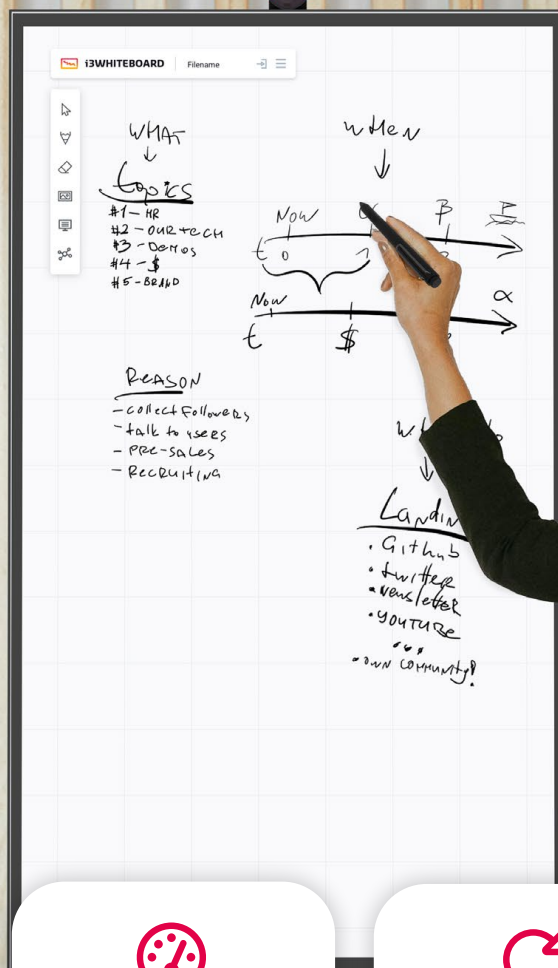 i3WHITEBOARD
Filename
WHAT
topics
#1 - HR
#2 - OUR tECH
#3 - DeMOS
#4 - $
#5 - BRAND
REASON
- collect Followers
- talk to users
- PRE-SALES
- RECRUItING
wHeN
Now
β
t 0 1
Now
α
t $
Landin
• Github
• twitter
• Newsletter
• YOUTUBE
...
• OWN COMMUNITY?